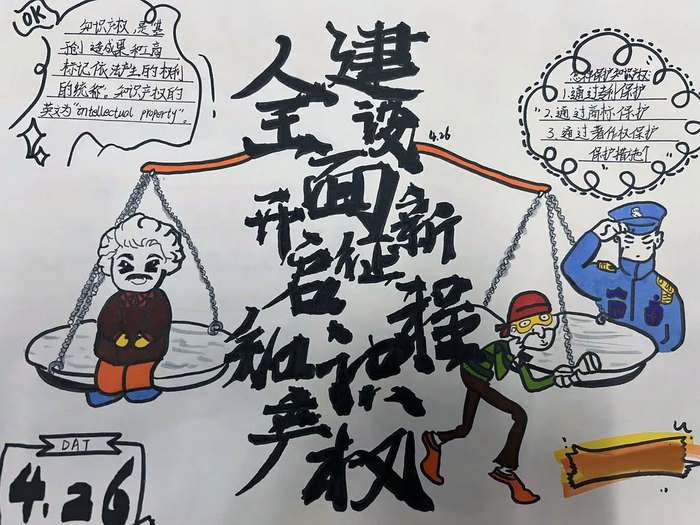 OK
知识产权,是"基
于创造成果和工商
标记依法产生的权利
的统称。知识产权的
英文为"intellectual property"。
怎样保护知识产权
1.通过专利保护
2.通过商标保护
3.通过著作权保护
保护措施
4.26
全面开启
知识产权
建设新征程
DAT
4.26